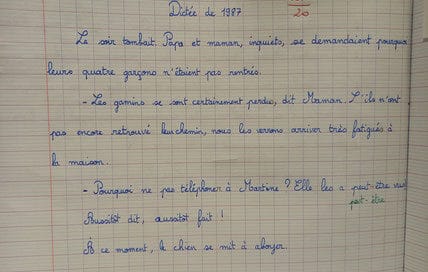 Dictée de 1987
20
Le soir tombait. Papa et maman, inquiets, se demandaient pourquoi
leurs quatre garçons n'étaient pas rentrés.
- Les gamins se sont certainement perdus, dit Maman. S'ils n'ont
pas encore retrouvé leur chemin, nous les verrons arriver très fatigués à
la maison.
- Pourquoi ne pas téléphoner à Martine ? Elle les a peut-être vus
peut-être
Aussitôt dit, aussitôt fait !
À ce moment, le chien se mit à aboyer.